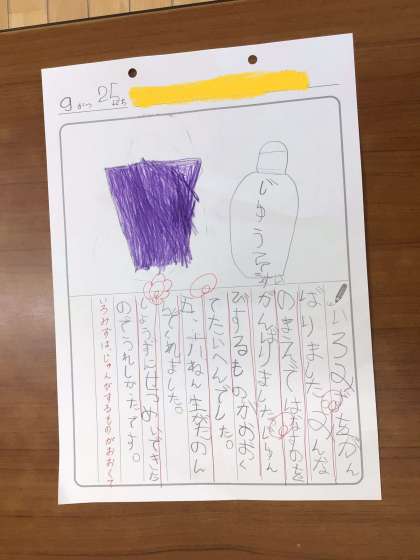 9がつ25にち
じゅうです
いろみずをがん
ばりました。みんな
のまえではなすのを
がんばりました。じゅん
びするものがおおく
てたいへんでした。
ねん生がたのん
くれました。
じょうずにせつめいできた
のでうれしかたです。
いろみずは、じゅんびするものがおおくて